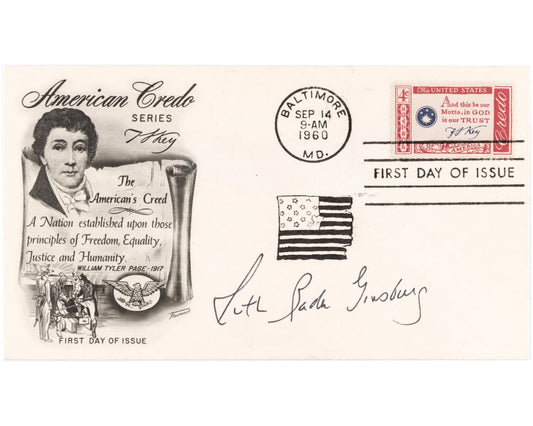 American Credo
SERIES
F S Key
The
American's Creed
A Nation established upon those
principles of Freedom, Equality,
Justice and Humanity.
WILLIAM TYLER PAGE-1917
FIRST DAY OF ISSUE
BALTIMORE
SEP 14
9-AM
1960
MD.
The UNITED STATES
4¢
And this be our
Motto, in GOD
is our TRUST
F S Key
Credo
OF AMERICA
FIRST DAY OF ISSUE
Ruth Bader Ginsburg